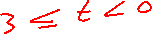 3 ≤ t < 0